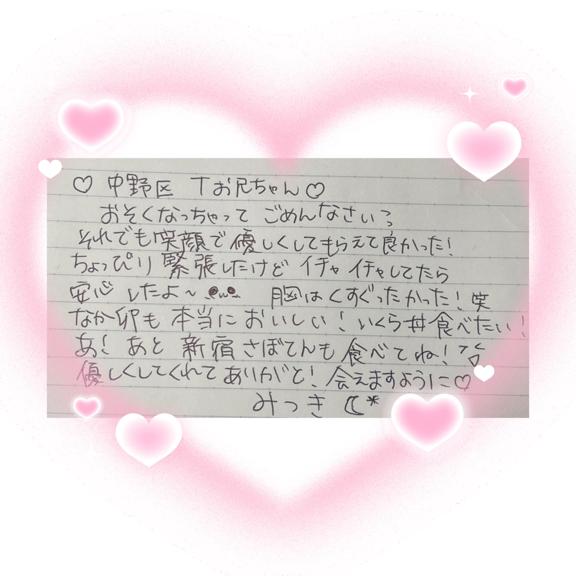 ♡ 中野区 Tお兄ちゃん♡
おそくなっちゃって ごめんなさい
それでも笑顔で優しくしてもらえて良かった!
ちょっぴり 緊張したけど イチャイチャしてたら
安心したよ〜 胸はくすぐったかった!笑
なか卯も本当においしい!いくら丼食べたい!
あ!あと 新宿さぼてんも食べてね!
優しくしてくれてありがと!会えますように♡
みつき ☾*